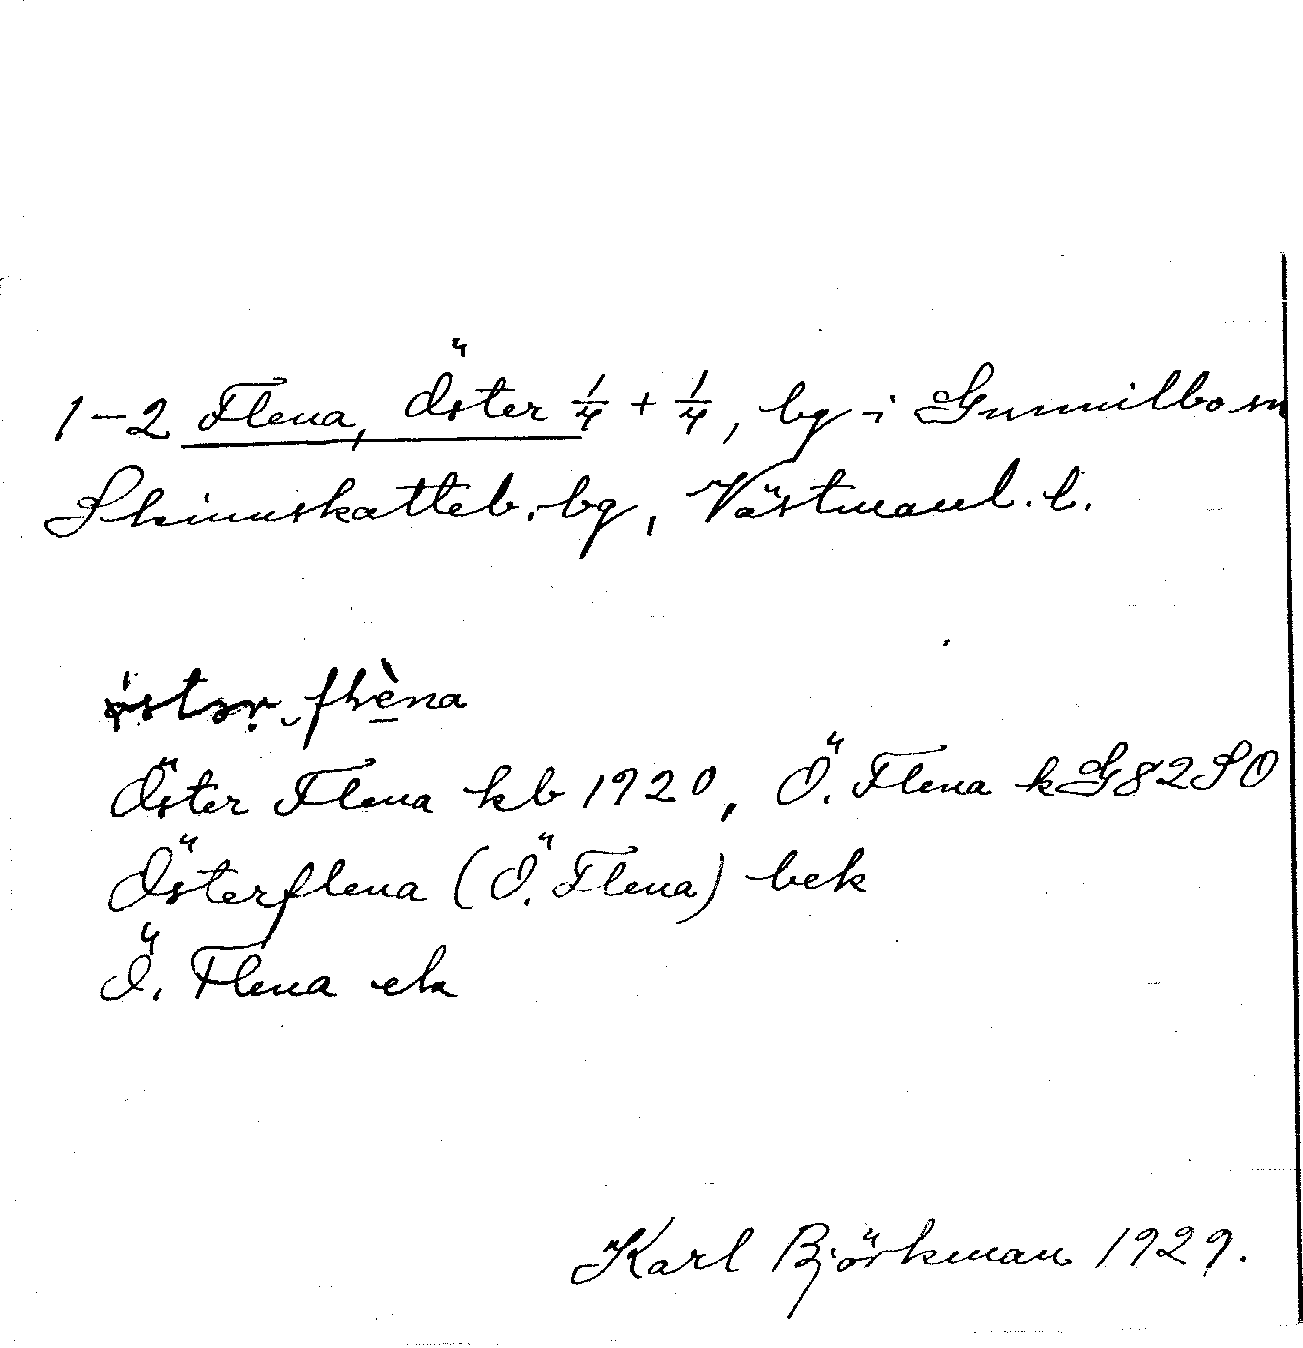 1-2 Flena, Öster ¼ + ¼, bg i Gunnilbo sn
Skinnskatteb. bg, Västmanl. l.
flèna
Öster Flena kb 1920, Ö. Flena kG82SO
Österflena (Ö. Flena) bek
Ö. Flena ek
Karl Björkman 1929.